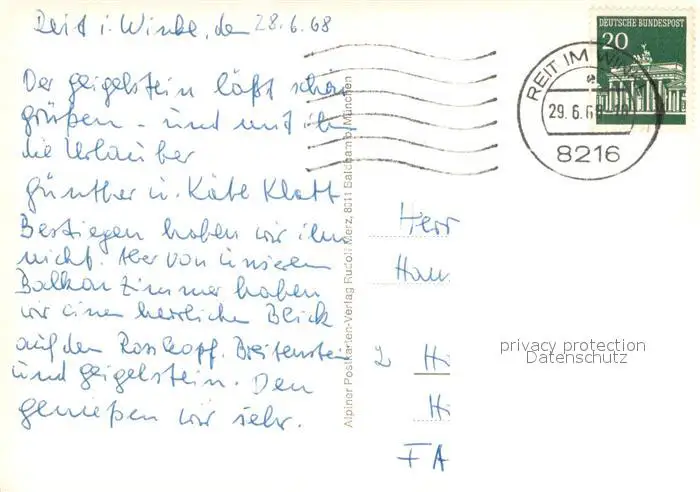 Reit i. Winkl, den 28.6.68
Der Geigelstein läßt schön
grüßen und mit ihm
die Urlauber
Günther u. Käte Klatt
Bestiegen haben wir ihn
nicht. Aber von unserem
Balkonzimmer haben
wir einen herrlichen Blick
auf den Rosskopf, Breitenstein
und Geigelstein. Den
genießen wir sehr.
Alpiner Postkarten-Verlag Rudolf Merz, 8011 Baldham b. München
DEUTSCHE BUNDESPOST
20
REIT IM WINKL
29.6.68
8216
Herr
Han
2 H
H
FA
privacy protection
Datenschutz